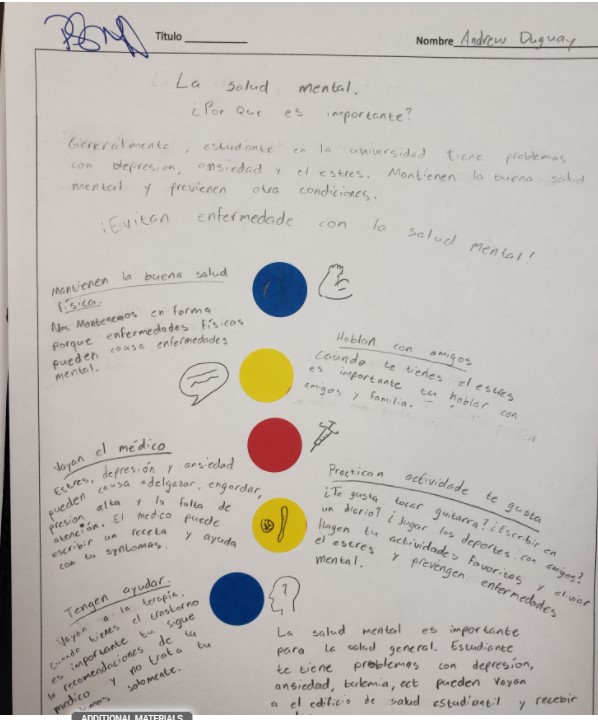 Título
Nombre Andrew Duguay
La salud mental.
¿Por Que es importante?
Generalmente, estudiante en la universidad tiene problemas
con depresion, ansiedad y el estres. Mantienen la buena salud
mental y previenen otra condiciones.
¡Evitan enfermedade con la salud mental!
Mantienen la buena salud
física.
Nos Mantenemos en forma
porque enfermedades físicas
pueden causa enfermedades
mental.
Hablan con amigos
Cuando te tienes el estres
es importante tu hablar con
amigos y familia.
Vayan el médico
Estres, depresión y ansiedad
pueden causa adelgazar, engordar,
presion alta y la falta de
atención. El medico puede
escribir un receta y ayuda
con tu syntomas.
Practican actividade te gusta
¿Te gusta tocar guitarra? ¿Escribir en
un diario? ¿Jugar los deportes con amigos?
Hagen tu actividades favoritas y aliviar
el estres y prevengen enfermedades
mental.
Tengen ayudar.
Vayan a la terapia.
Cuando tienes el trastorno
es importante tu sigue
la recomendaciones de tu
medico y no trata tu
solomente.
La salud mental es importante
para la salud general. Estudiante
te tiene problemas con depresion,
ansiedad, bulemia, ect pueden vayan
a el edificio de salud estudiantil y recebir
ADDITIONAL MATERIALS